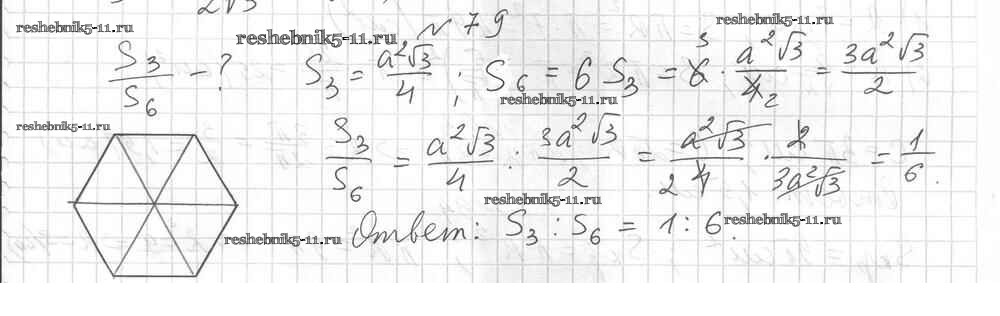 2√3
reshebnik5-11.ru № 79 reshebnik5-11.ru
reshebnik5-11.ru
S₃/S₆ - ? S₃ = a²√3/4 ; S₆ = 6 S₃ = 6 3 · a²√3/4 2 = 3a²√3/2
reshebnik5-11.ru
reshebnik5-11.ru
S₃/S₆ = a²√3/4 : 3a²√3/2 = a²√3/4 2 · 2/3a²√3 = 1/6.
reshebnik5-11.ru
reshebnik5-11.ru Ответ: S₃ : S₆ = 1 : 6. reshebnik5-11.ru